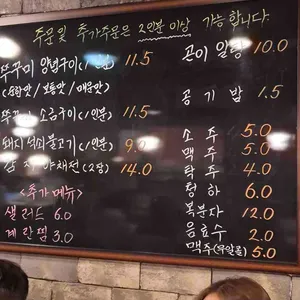 주문 및 추가주문은 2인분 이상 가능합니다.
쭈꾸미 양념구이(1인분) 11.5
(순한맛/보통맛/매운맛)
쭈꾸미 소금구이(1인분) 11.5
돼지석쇠불고기(1인분) 9.0
삼지야채전(2장) 14.0
<추가메뉴>
샐러드 6.0
계란찜 3.0
곤이 알탕 10.0
공기밥 1.5
소주 5.0
맥주 5.0
탁주 4.0
청하 6.0
복분자 12.0
음료수 2.0
맥주(무알콜) 5.0